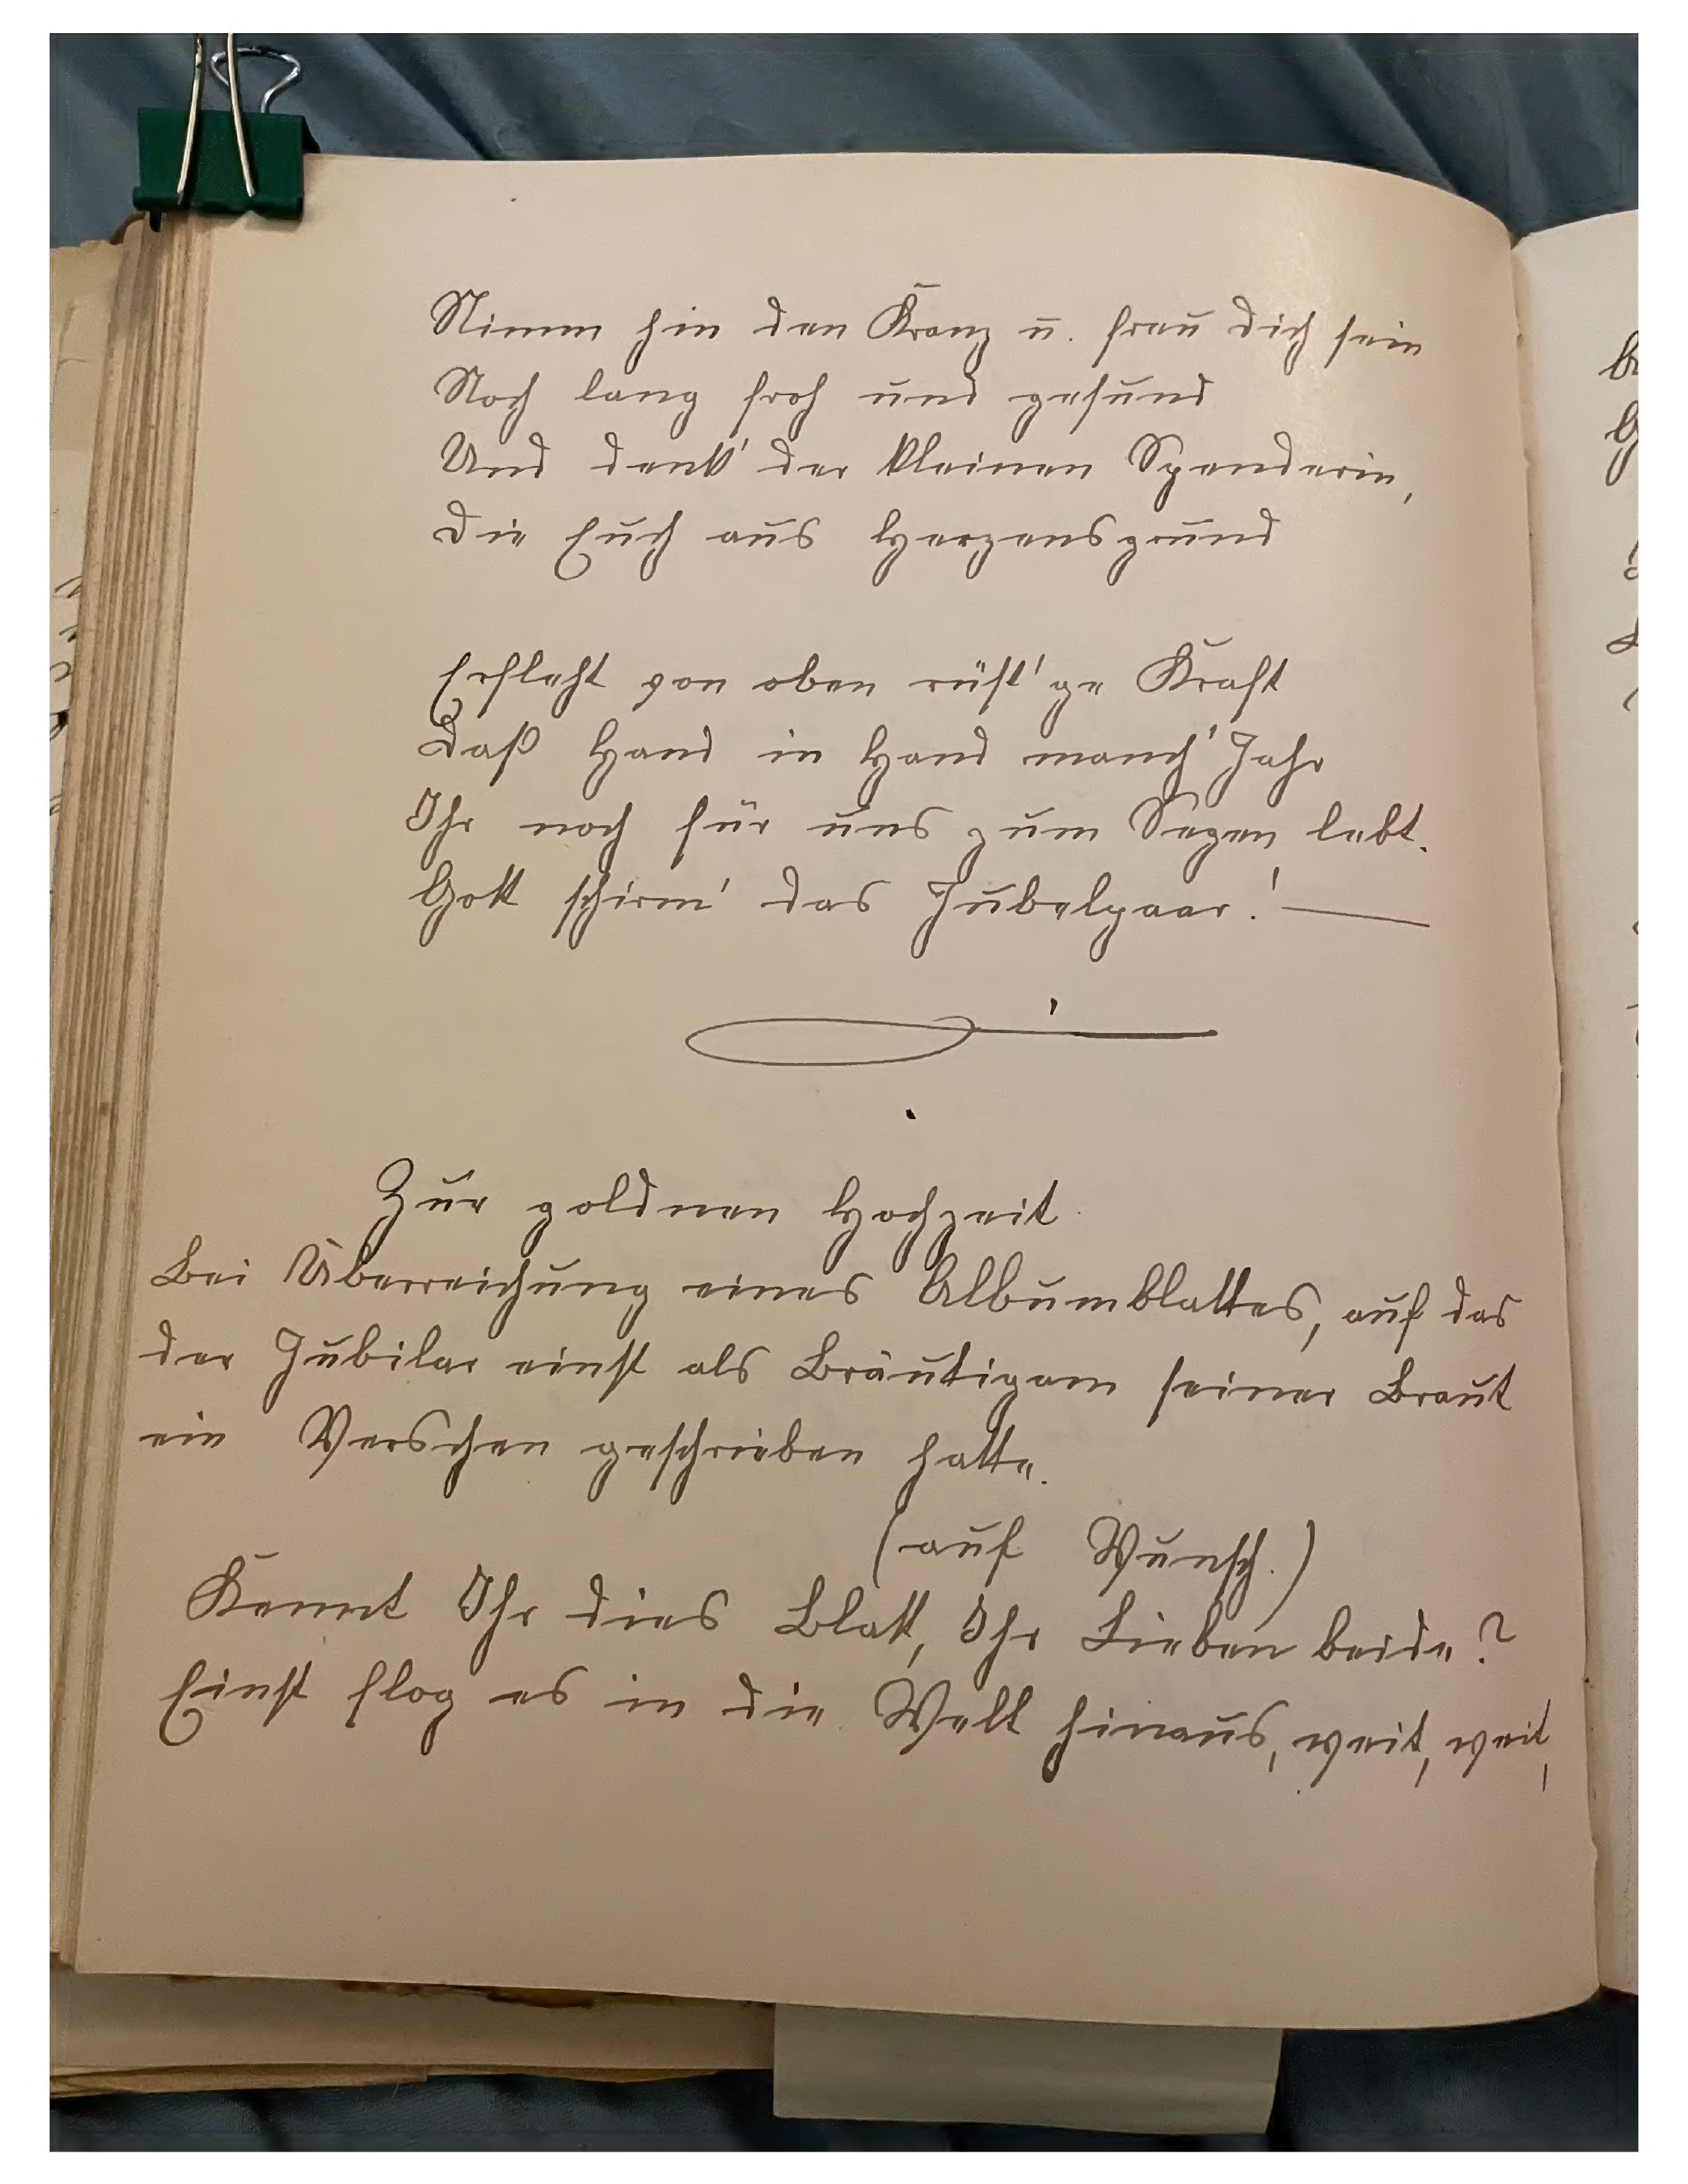 Nimm hin den Kranz u. freu dich sein
Noch lang froh und gesund
Und denk' der kleinen Spenderin,
Die Euch aus Herzensgrund
Erfleht von oben rüst'ge Kraft
Daß Hand in Hand manch' Jahr
Ihr noch für uns zum Segen lebt.
Gott schirm' das Jubelpaar! —
Zur goldnen Hochzeit
Bei Überreichung eines Albumblattes, auf das
der Jubilar einst als Bräutigam seiner Braut
ein Verschen geschrieben hatte.
(auf Wunsch.)
Kennt Ihr dies Blatt, Ihr Lieben beide?
Einst flog es in die Welt hinaus, weit, weit,